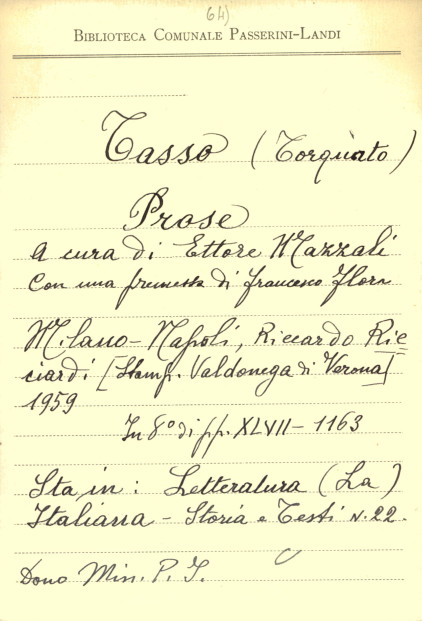 64)
BIBLIOTECA COMUNALE PASSERINI-LANDI
Tasso (Torquato)
Prose
A cura di Ettore Mazzali
Con una premessa di Francesco Flora
Milano-Napoli, Riccardo Ric=
ciardi [Stamp. Valdonega di Verona]
1959
In 8° di pp. XLVII-1163
Sta in: Letteratura (La)
Italiana - Storia e Testi N.22.
Dono Min. P. I.